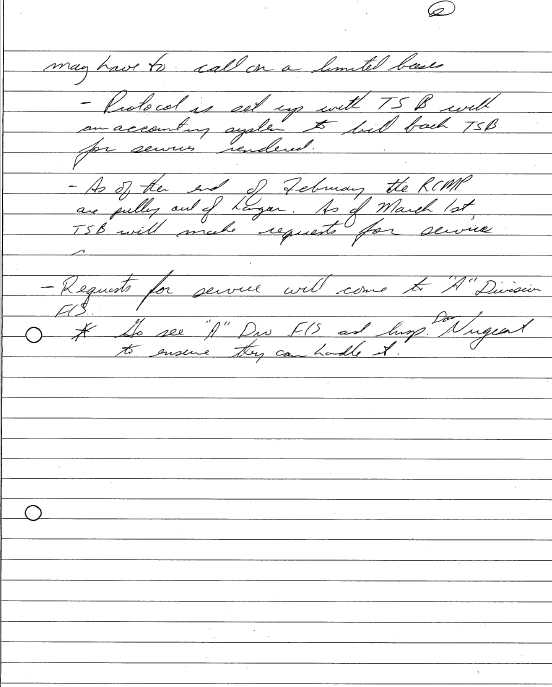 2
may have to call on a limited bases
- Protocol is set up with TSB with
an accounting system to bill back TSB
for services rendered.
- As of the end of February the RCMP
are pulling out of hangar. As of March 1st,
TSB will make requests for service
- Requests for service will come to "A" Division
FIS.
* Go see "A" Div FIS and Insp. Nugent
to ensure they can handle it.